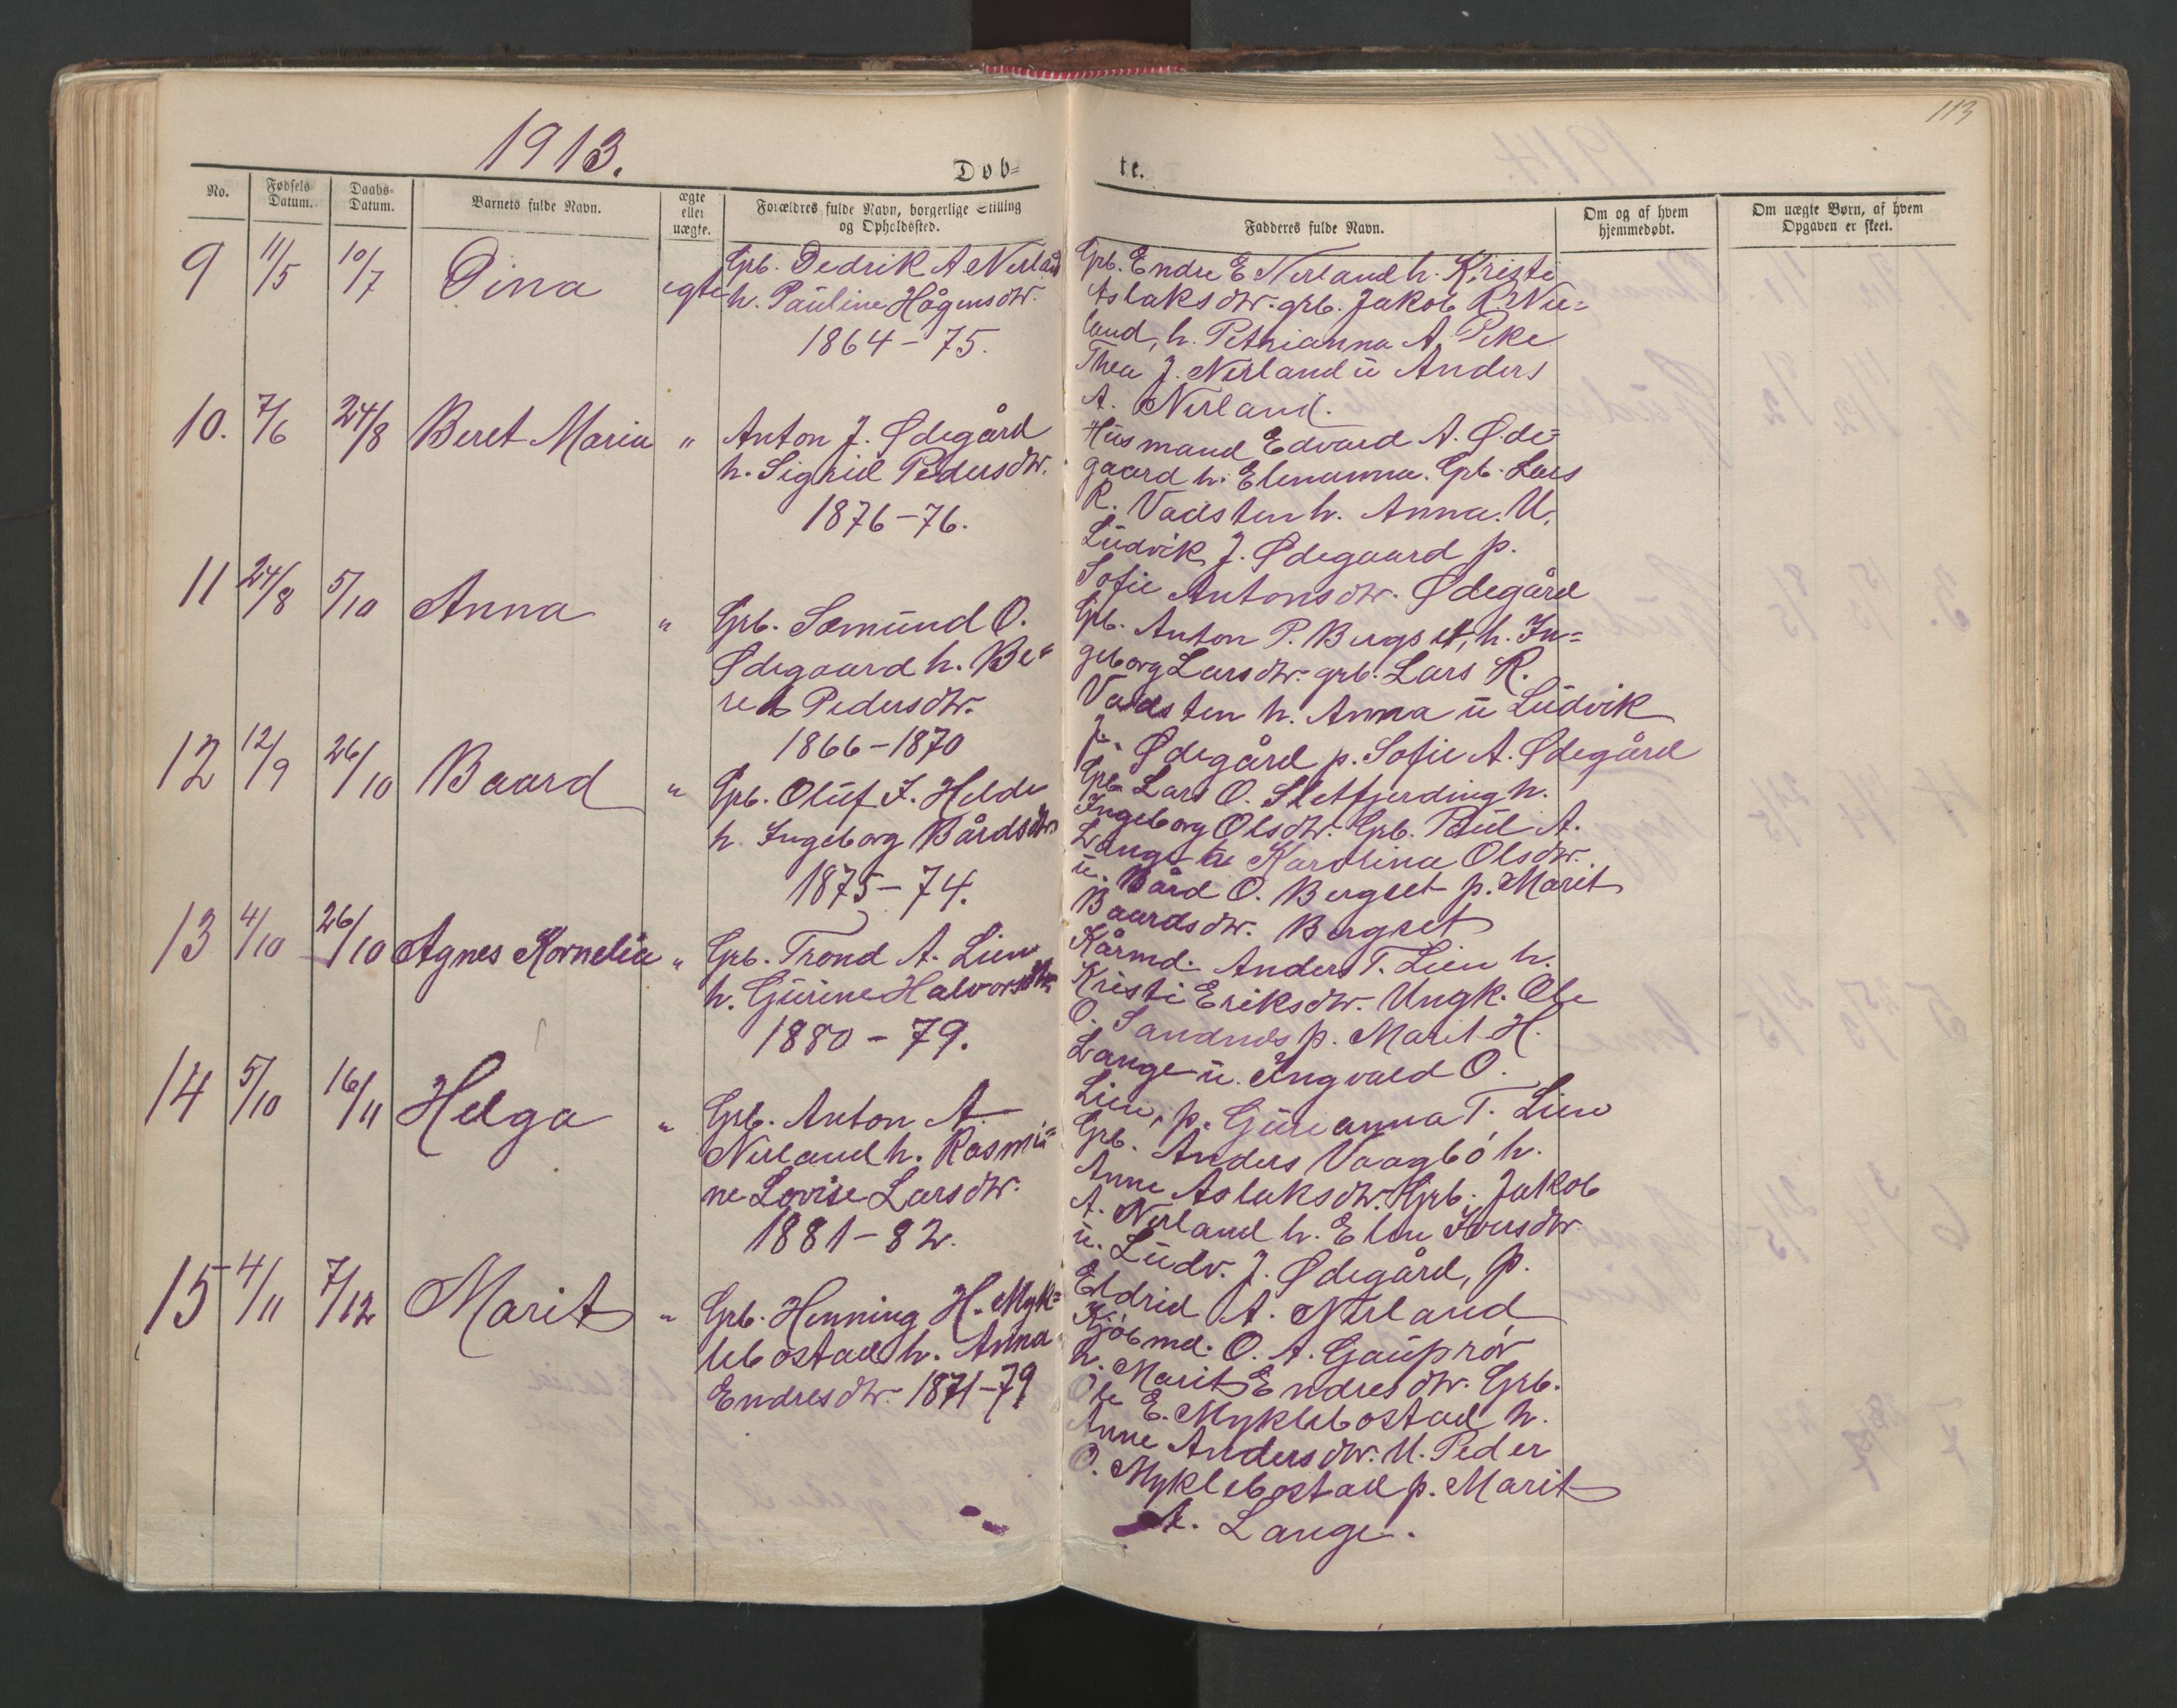 113
1913.
Døb=
te.
No.
Fødsels Datum.
Daabs-Datum.
Barnets fulde Navn.
ægte eller uægte.
Forældres fulde Navn, borgerlige Stilling og Opholdssted.
Fadderes fulde Navn.
Om og af hvem hjemmedøbt.
Om uægte Børn, af hvem Opgaven er skeet.
9 11/5 10/7 Dina egte
Grb. Dedrik A Nerland
h. Pauline Hågensdtr.
1864-75.
Grb. Endre E Nerland h. Kristi
Aslaksdtr. grb. Jakob A Ner=
land, h. Petrianna A. Pike
Thea J. Nerland u Anders
A. Nerland.
10. 7/6 24/8 Beret Maria "
Anton J. Ødegård
h. Sigrid Pedersdtr.
1876-76.
Husmand Edvard A. Øde=
gaard h. Elenanna. Grb. Lars
R. Vadsten h. Anna. U.
Ludvik J. Ødegaard p.
Sofie Antonsdtr. Ødegård
11 24/8 5/10 Anna "
Grb. Sæmund O.
Ødegaard h. Be=
ret Pedersdtr.
1866-1870
Grb. Anton P. Bergset, h. In=
geborg Larsdtr. grb. Lars R.
Vadsten h. Anna u Ludvik
J. Ødegård p. Sofie A. Ødegård
12 12/9 26/10 Baard "
Grb. Oluf I. Helde
h. Ingeborg Bårdsdtr
1875-74.
Grb. Lars O. Sletfjerding h.
Ingeborg Olsdtr. Grb. Paul A.
Lange h Karolina Olsdtr.
u. Bård O. Bergset p. Marit
Baardsdtr. Bergset
13 4/10 26/10 Agnes Kornelia "
Grb. Trond A. Lien
h. Gurine Halvorsdtr
1880-79.
Kårmd. Anders T. Lien h.
Kristi Eriksdtr. Ungk. Ole
O. Sandnes p. Marit H.
Lange u. Ingvald O.
Lien, p. Gurianna T. Lien
14 5/10 16/11 Helga "
Grb. Anton A.
Nerland h. Rasmi=
ne Lovise Larsdtr.
1881-82.
Grb. Anders Vaagbó h.
Anne Aslaksdtr. Grb. Jakob
A. Nerland h. Elen Iversdtr.
u. Ludv. J. Ødegård, p.
Eldrid A. Nerland
15 4/11 7/12 Marit "
Grb. Henning H. Myk=
lebostad h. Anna
Endresdtr. 1871-79
Kjøbmd. O. A. Gauprør
h. Marit Endresdtr. Grb.
Ole E. Myklebostad h.
Anne Andersdtr. U. Peder
O. Myklebostad p. Marit
A. Lange.